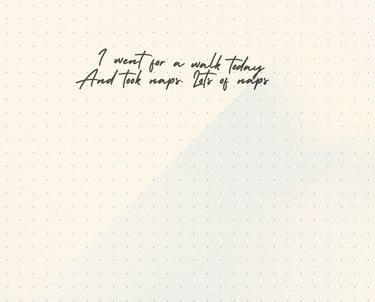 I went for a walk today
And took naps. Lots of naps